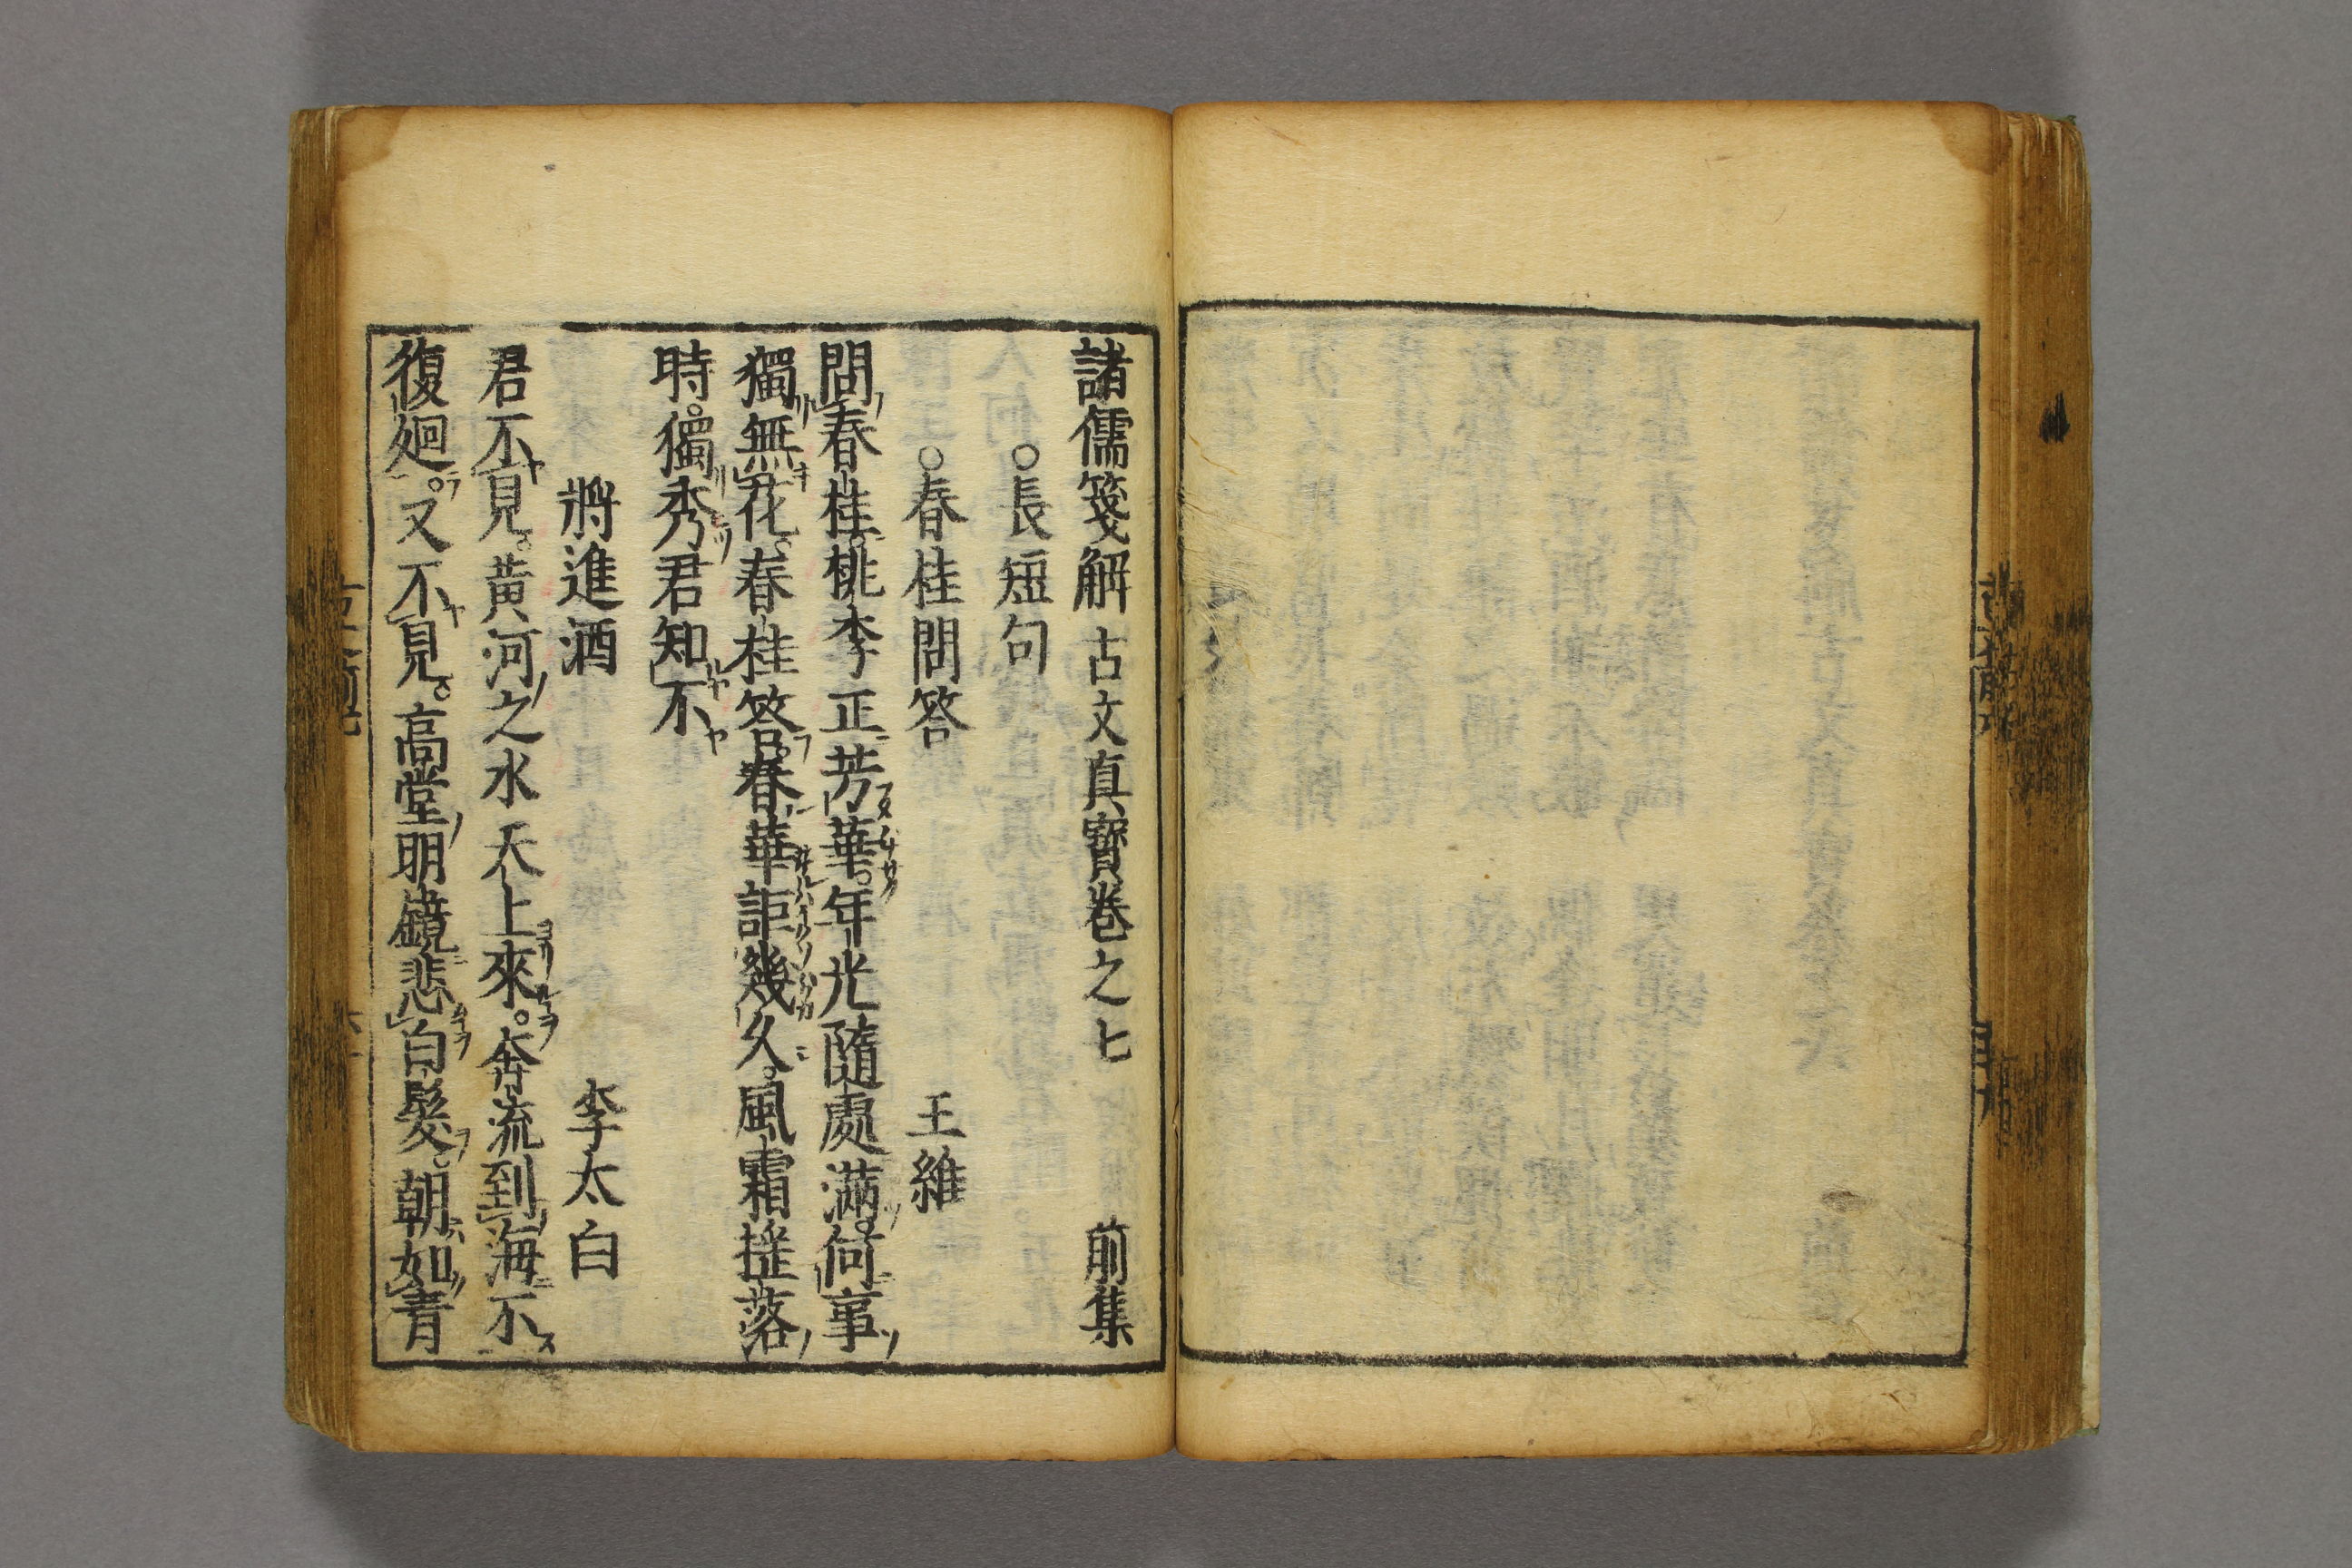 諸儒箋解古文真寶卷之七 前集
○長短句
○春桂問答 王維
問春桂。桃李正芳華。年光隨處滿。何事
獨無花。春桂答。春華詎幾久。風霜搓落
時。獨秀君知不
將進酒 李太白
君不見。黃河之水天上來。奔流到海不
復廻。又不見。高堂明鏡悲白髮。朝如青